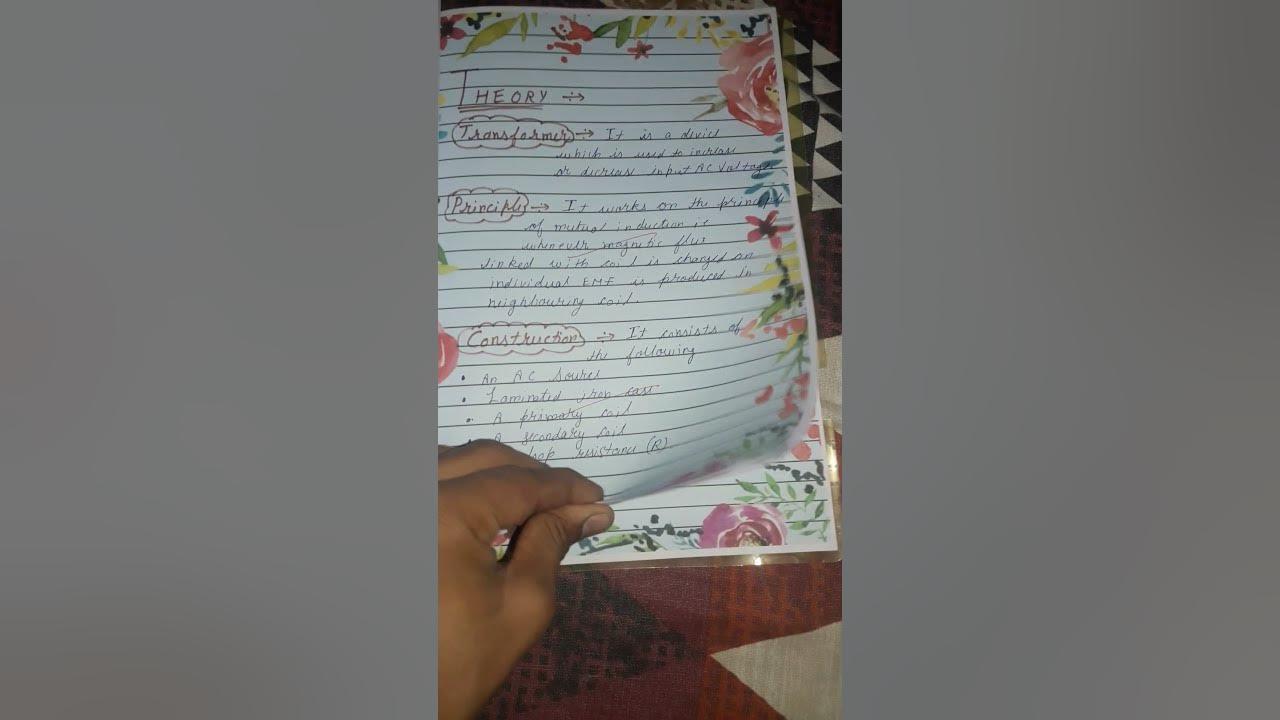 THEORY ÷→
Transformer ÷→ It is a device
which is used to increase
or decrease input AC Voltage
Principle ÷→ It works on the principle
of mutual induction ie
whenever magnetic flux
linked with coil is changed an
individual EMF is produced in
neighbouring coil.
Construction ÷→ It consists of
the following
• An AC Source
• Laminated iron
• A primary coil
A secondary coil
resistance (R).